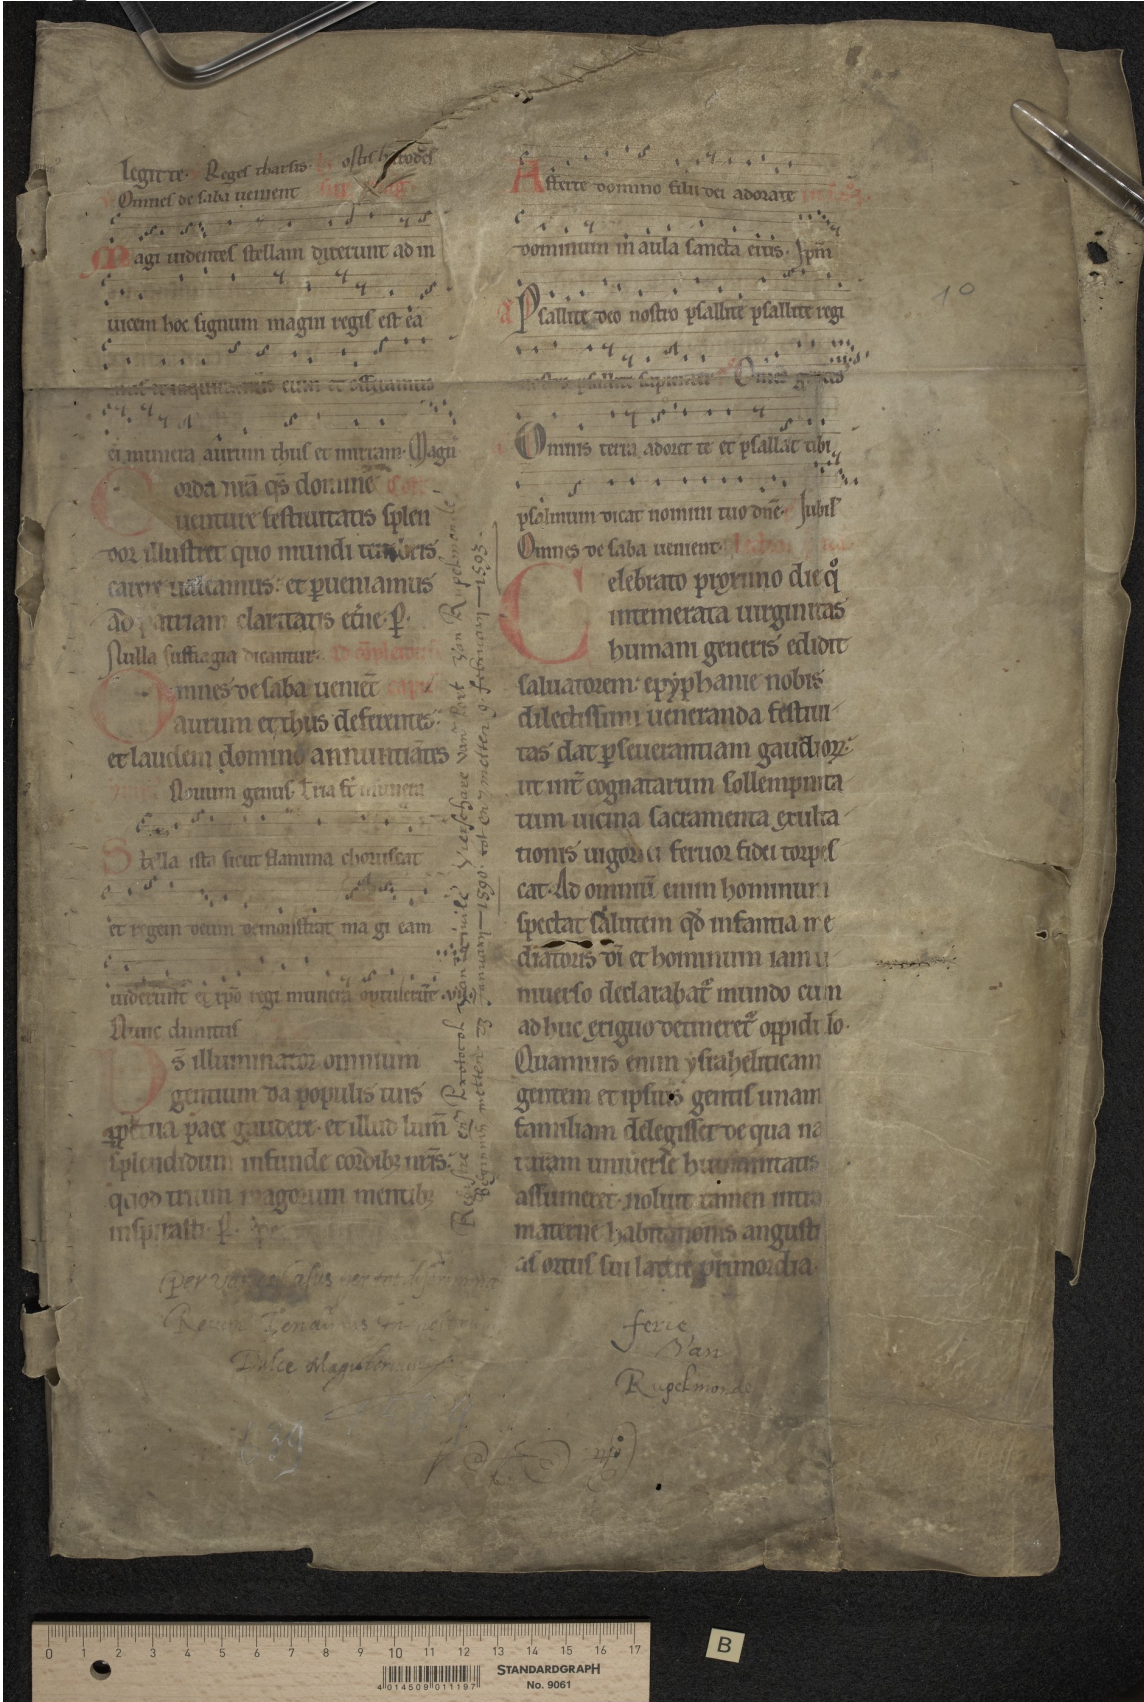 legit te. Reges tharsis. ostis herodes
Omnes de saba uenient
Magi uidentes stellam dixerunt ad in
uicem hoc signum magni regis est ea
mus et inquiramus eum et offeramus
ei munera aurum thus et mirram. Magn
Corda nr̄a qs̄ domine
uenture festiuitatis splen
dor illustret quo mundi tenebris
carere ualeamus: et ꝑueniamus
ad patriam claritatis et̄ne. P̱.
Nulla suffragia dicantur. ad cōpletoriū
Omnes de saba ueniēt capit
aurum et thus deferentes:
et laudem domino annuntiantes
Nouum genus. Tria st̄ munera
Stella ista sicut flamma choruscat
et regem deum demonstrat ma gi eam
uiderunt et xp̄o regi munera optulerunt.
Nunc dimittis
Ds̄ illuminator omnium
gentium da populis tuis
ꝑpetua pace gaudere. et illud lum̄
splendidum infunde cordibꝫ nr̄is:
quod trium magorum mentibꝫ
inspirasti. P̱.
Register en Protocol van Vierschare van Rupelmonde
Beginnen metten 13 January 1590 tot en metten 9 february 1593
Afferte domino filii dei adorate
dominum in aula sancta eius. Ip̄m
a Psallite deo nostro psallite psallite regi
nostro psallite sapienter. Om̄es gentes
Omnis terra adoret te et psallat tibi
psalmum dicat nomini tuo dn̄e. Iubil
Omnes de saba uenient.
Celebrato proximo die qͦ
intemerata uirginitas
humani generis edidit
saluatorem: epyphanie nobis
dilectissimi ueneranda festiui
tas dat ꝑseuerantiam gaudioꝝ:
ut int̄ cognatarum sollempnita
tum uicina sacramenta exulta
tionis uigor et feruor fidei torpes
cat. Ad omniū enim hominum
spectat salutem qd̄ infantia me
diatoris dī et hominum iam u
niuerso declarabat᷑ mundo cum
adhuc exiguo detineret᷑ oppidulo.
Quamuis enim ysraheliticam
gentem et ipsius gentis unam
familiam delegisset de qua na
turam uniuerse humanitatis
assumeret. noluit tamen intra
materne habitationis angusti
as ortus sui latere primordia.
Per varios casus per tot discrimina
Rerum
Dulce
ferie
Van
Rupelmonde
10
139
0 1 2 3 4 5 6 7 8 9 10 11 12 13 14 15 16 17
4 014509 011197
STANDARDGRAPH
No. 9061
B